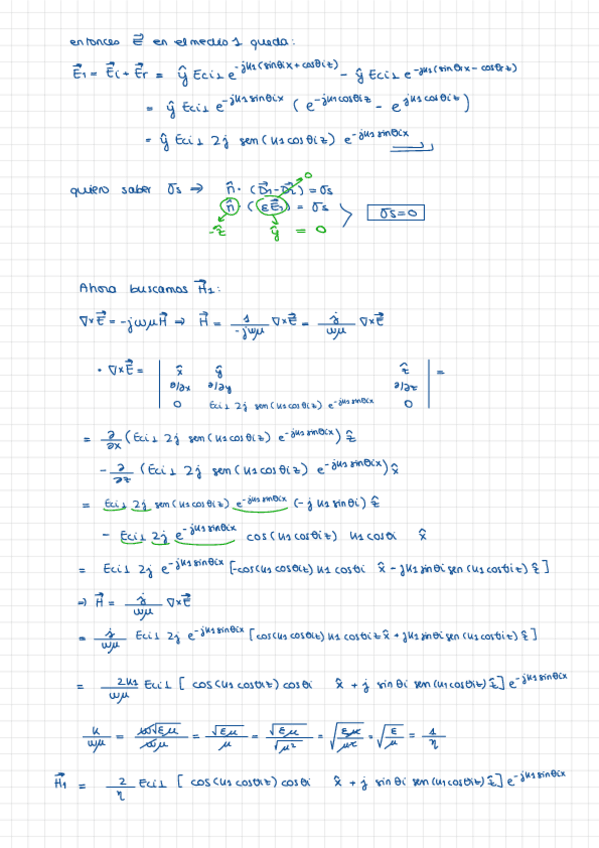 entonces E⃗ en el medio 1 queda:
E⃗₁ = E⃗i + E⃗r = ŷ Eci⊥ e^{-jk₁(sinθi x + cosθi z)} - ŷ Eci⊥ e^{-jk₁(sinθi x - cosθi z)}
= ŷ Eci⊥ e^{-jk₁ sinθi x} (e^{-jk₁ cosθi z} - e^{jk₁ cosθi z})
= ŷ Eci⊥ 2j sen(k₁ cosθi z) e^{-jk₁ sinθi x}
quiero saber σs ⇒ n̂ · (D⃗₁ - D⃗₂) = σs 0
n̂ · (εE⃗₁) = σs σs = 0
-ẑ ŷ = 0
Ahora buscamos H⃗₁:
∇×E⃗ = -jωμH⃗ ⇒ H⃗ = 1/(-jωμ) ∇×E⃗ = j/(ωμ) ∇×E⃗
· ∇×E⃗ = | x̂ ŷ ẑ | =
∂/∂x ∂/∂y ∂/∂z
0 Eci⊥ 2j sen(k₁ cosθi z) e^{-jk₁ sinθi x} 0
= ∂/∂x (Eci⊥ 2j sen(k₁ cosθi z) e^{-jk₁ sinθi x}) ẑ
- ∂/∂z (Eci⊥ 2j sen(k₁ cosθi z) e^{-jk₁ sinθi x}) x̂
= Eci⊥ 2j sen(k₁ cosθi z) e^{-jk₁ sinθi x} (-j k₁ sinθi) ẑ
- Eci⊥ 2j e^{-jk₁ sinθi x} cos(k₁ cosθi z) k₁ cosθi x̂
= Eci⊥ 2j e^{-jk₁ sinθi x} [-cos(k₁ cosθi z) k₁ cosθi x̂ - jk₁ sinθi sen(k₁ cosθi z) ẑ]
⇒ H⃗ = j/(ωμ) ∇×E⃗
= j/(ωμ) Eci⊥ 2j e^{-jk₁ sinθi x} [cos(k₁ cosθi z) k₁ cosθi x̂ + jk₁ sinθi sen(k₁ cosθi z) ẑ]
= 2k₁/(ωμ) Eci⊥ [cos(k₁ cosθi z) cosθi x̂ + j sinθi sen(k₁ cosθi z) ẑ] e^{-jk₁ sinθi x}
k/(ωμ) = ω√(εμ)/(ωμ) = √(εμ)/μ = √(εμ)/√(μ²) = √(εμ/μ²) = √(ε/μ) = 1/η
H⃗₁ = 2/η Eci⊥ [cos(k₁ cosθi z) cosθi x̂ + j sinθi sen(k₁ cosθi z) ẑ] e^{-jk₁ sinθi x}